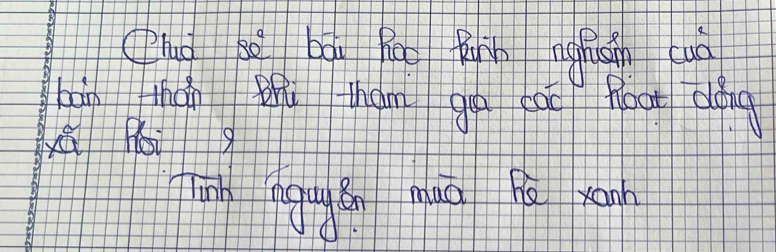 Chia sẻ bài học kinh nghiệm của
bản thân khi tham gia các hoạt động
xã hội ?
Tình nguyện mùa hè xanh